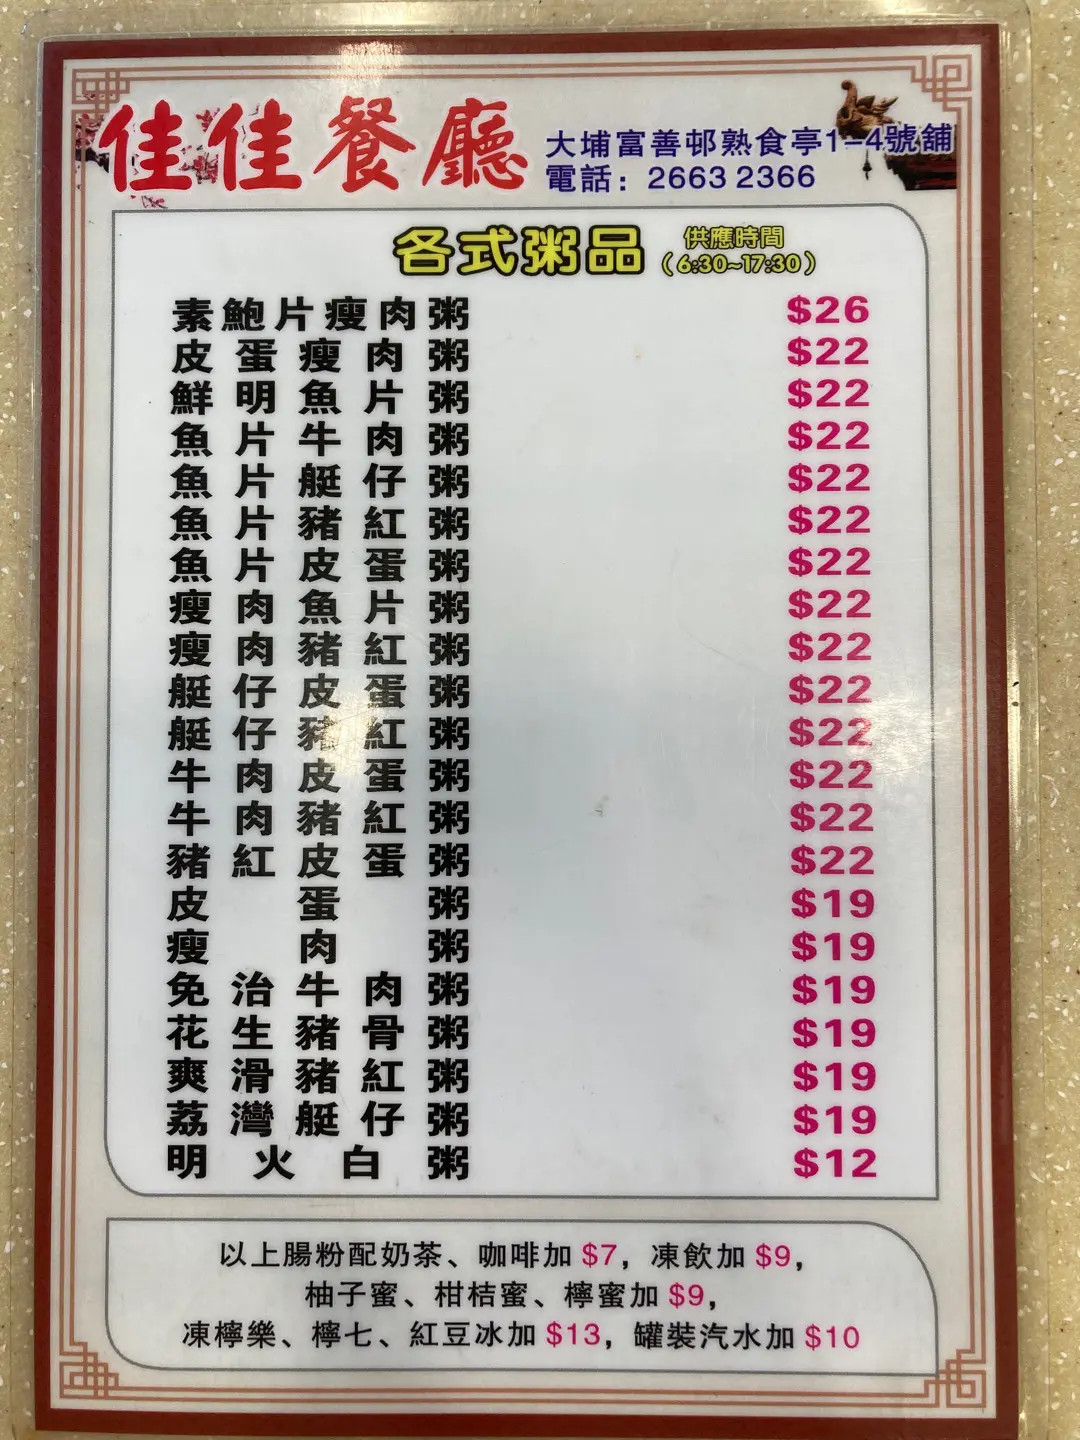 佳佳餐廳
大埔富善邨熟食亭1-4號舖
電話：2663 2366
各式粥品 供應時間
(6:30~17:30)
素鮑片瘦肉粥 $26
皮蛋瘦肉粥 $22
鮮明魚片粥 $22
魚片牛肉粥 $22
魚片艇仔粥 $22
魚片豬紅粥 $22
魚片皮蛋粥 $22
瘦肉魚片粥 $22
瘦肉豬紅粥 $22
艇仔皮蛋粥 $22
艇仔豬紅粥 $22
牛肉皮蛋粥 $22
牛肉豬紅粥 $22
豬紅皮蛋粥 $22
皮蛋粥 $19
瘦肉粥 $19
免治牛肉粥 $19
花生豬骨粥 $19
爽滑豬紅粥 $19
荔灣艇仔粥 $19
明火白粥 $12
以上腸粉配奶茶、咖啡加 $7，凍飲加 $9，
柚子蜜、柑桔蜜、檸蜜加 $9，
凍檸樂、檸七、紅豆冰加 $13，罐裝汽水加 $10